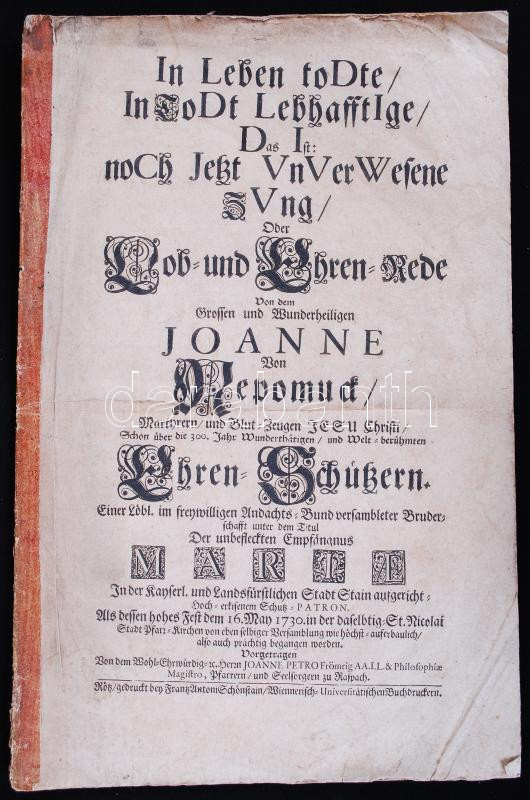 In Leben toDte/
In ToDt LebhafftIge/
Das Ist:
noCh Jetzt VnVerWesene
ZVng/
Oder
Lob- und Ehren-Rede
Von dem
Grossen und Wunderheiligen
JOANNE
Von
Nepomuck/
Martyrern/und Blut-Zeugen JESU Christi/
Schon über die 300. Jahr Wunderthätigen/ und Welt-berühmten
Ehren-Schützern.
Einer Löbl. im freywilligen Andachts-Bund versambleter Bruder-
schafft unter dem Titul
Der unbefleckten Empfängnus
MARIÆ
In der Kayserl. und Landsfürstlichen Stadt Stain aufgericht-
Hoch-erkisenem Schutz-PATRON.
Als dessen hohes Fest dem 16. May 1730. in der daselbtig-St. Nicolai
Stadt Pfarr-Kirchen von eben selbiger Versamblung wie höchst-auferbaulich/
also auch prächtig begangen worden.
Vorgetragen
Von dem Wohl-Ehrwürdig-ꝛc. Herrn JOANNE PETRO Frömrig AA.LL. & Philosophiæ
Magistro, Pfarrern/und Seelsorgern zu Raspach.
Rötz/gedruckt bey Frantz Antoni Schönstain/Wiennerisch-Universitätischen Buchdruckern.
darabanth